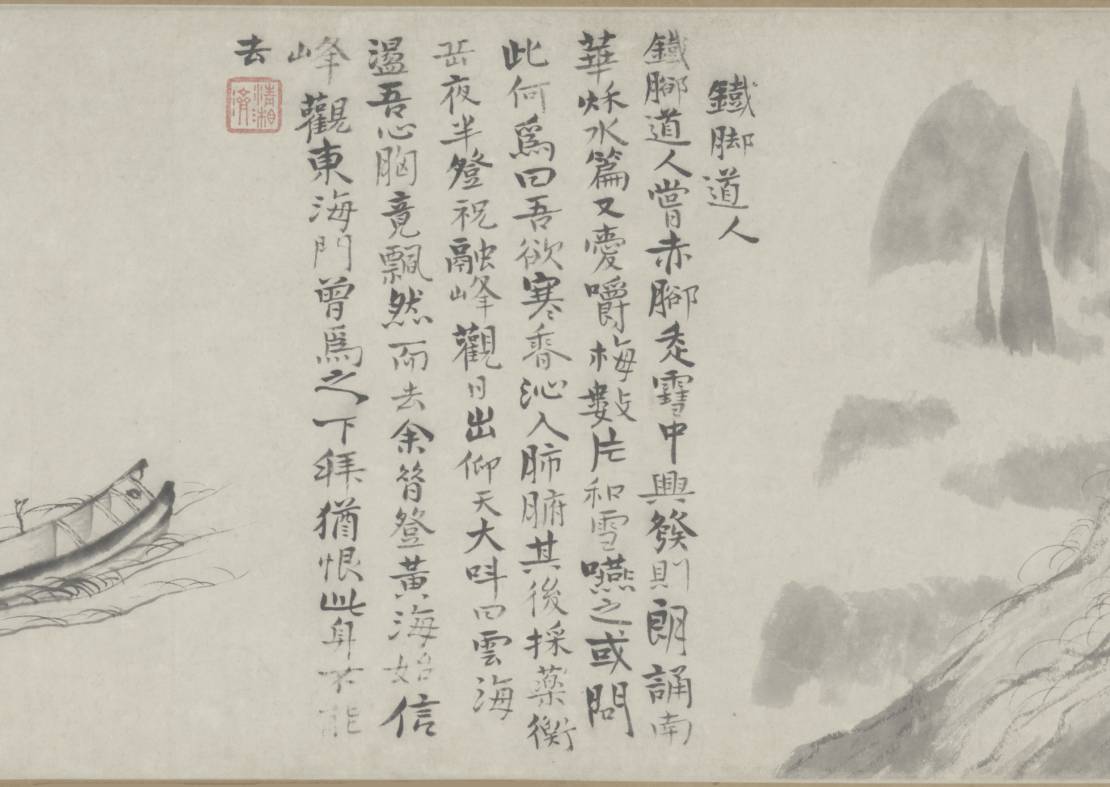 鐵脚道人
鐵腳道人嘗赤腳走雪中興發則朗誦南
華秋水篇又愛嚼梅數片和雪嚥之或問
此何爲曰吾欲寒香沁入肺腑其後採藥衡
岳夜半登祝融峰觀日出仰天大呌曰雲海
盪吾心胸竟飄然而去余昔登黃海始信
峰觀東海門曾爲之下拜猶恨此身不能
去
清湘
濟